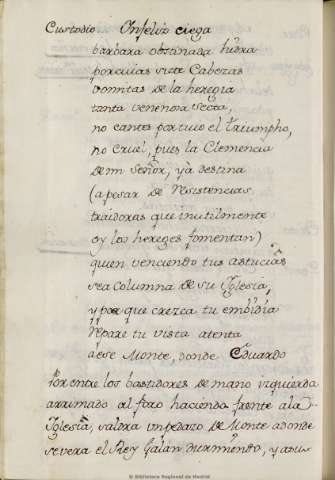 Custodio Ynfeliz ciega
barbara obstinada hidra
por cuias siete Cabezas
bomitas de la heregia
tanta venenosa secta,
no cantes por tuio el triumpho,
no cruel, pues la Clemencia
de mi Señor, ya destina
(a pesar de resistencias
traidoras que inutilmente
oy los hereges fomentan)
quien venciendo tus astucias
sea columna de su Iglesia,
y por que crezca tu embidia
repare tu vista atenta
a ese Monte, donde Eduardo
Por entre los bastidores de mano izquierda
arrimado al foro haciendo frente a la
Iglesia, saldra un pedazo de Monte adonde
se vera el Rey Galan durmiendo, y a su
© Biblioteca Regional de Madrid